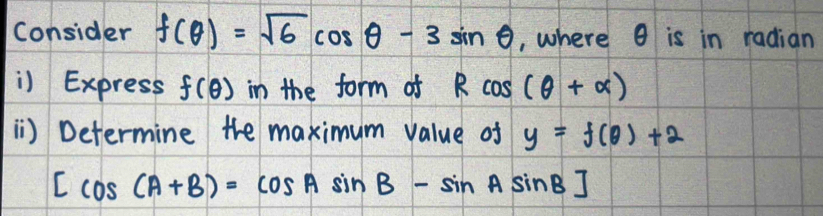 Consider f(θ) = √6 cos θ - 3 sin θ, where θ is in radian
i) Express f(θ) in the form of R cos (θ + α)
ii) Determine the maximum value of y = f(θ) + 2
[ cos (A + B) = cos A sin B - sin A sin B ]